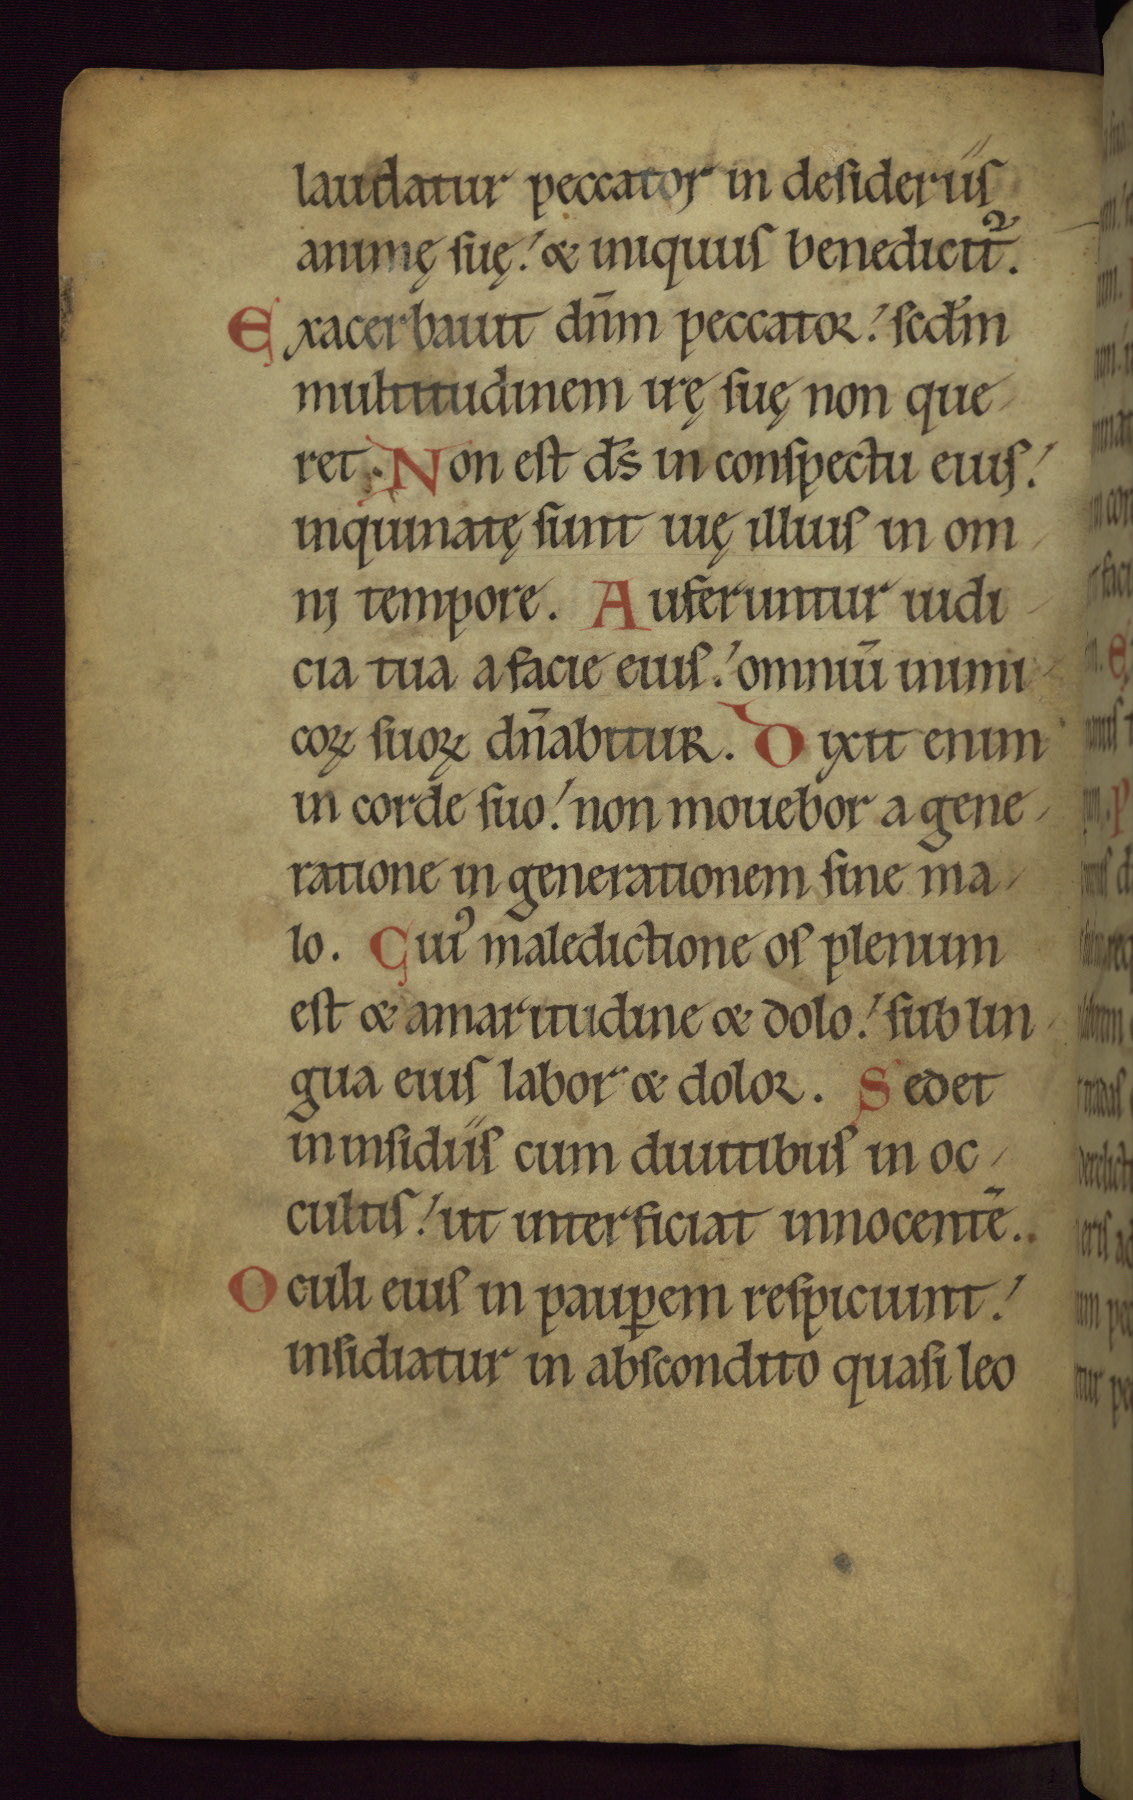 laudatur peccator in desideriis
animę suę: & iniquus benedicit᷑.
Exacerbauit dn̄m peccator: scd̄m
multitudinem irę suę non que
ret. Non est ds̄ in conspectu eius:
inquinatę sunt uię illius in om
nj tempore. Auferuntur iudi
cia tua a facie eius: omniū inimi
coꝝ suoꝝ dn̄abitur. Dixit enim
in corde suo: non mouebor a gene
ratione in generationem sine ma
lo. Cuiꝰ maledictione os plenum
est & amaritudine & dolo: sub lin
gua eius labor & dolor. Sedet
in insidiis cum diuitibus in oc
cultis: ut interficiat innocentē.
Oculi eius in pauꝑem respiciunt:
insidiatur in abscondito quasi leo